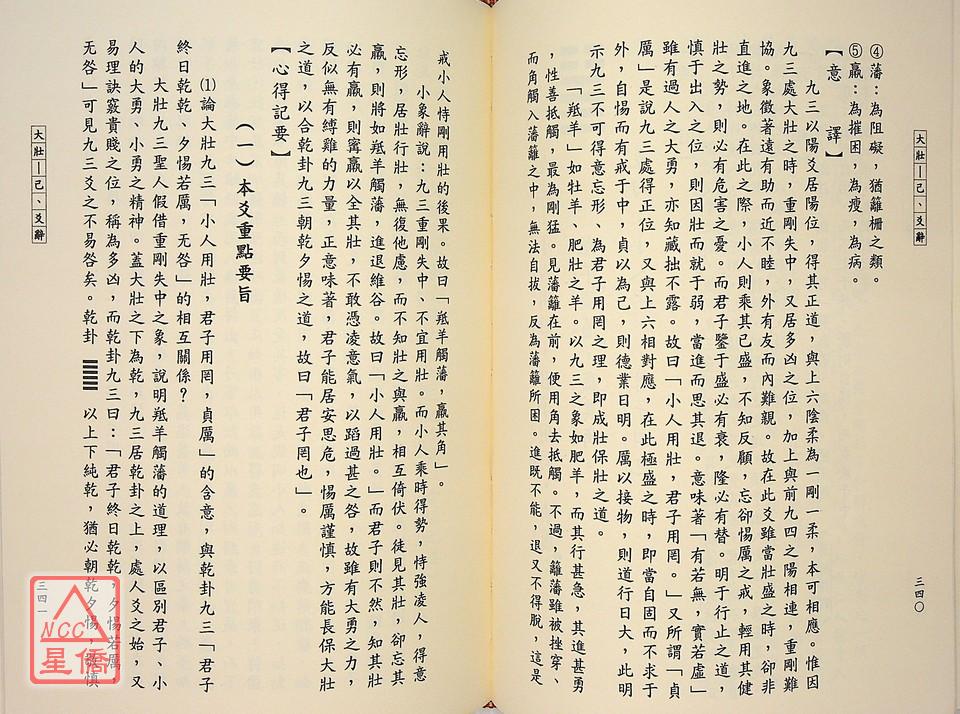 ④藩：為阻礙，猶籬柵之類。
⑤羸：為摧困，為瘦，為病。
【意　譯】
九三以陽爻居陽位，得其正道，與上六陰柔為一剛一柔，本可相應。惟因
九三處大壯之時，重剛失中，又居多凶之位，加上與前九四之陽相連，重剛難
協。象徵著遠有助而近不睦，外有友而內難親。故在此爻雖當壯盛之時，卻非
直進之地。在此之際，小人則乘其已盛，不知反顧，忘卻惕厲之戒，輕用其健
壯之勢，則必有危害之憂。而君子鑒于盛必有衰，隆必有替。明于行止之道，
慎于出入之位，則因壯而就于弱，當進而思其退。意味著「有若無，實若虛」
雖有過人之大勇，亦知藏拙不露。故曰「小人用壯，君子用罔。」又所謂「貞
厲」是說九三處得正位，又與上六相對應，在此極盛之時，即當自固而不求于
外，自惕而有戒于中，貞以為己，則德業日明。厲以接物，則道行日大，此明
示九三不可得意忘形、為君子用罔之理，即成壯保壯之道。
「羝羊」如牡羊、肥壯之羊。以九三之象如肥羊，而其行甚急，其進甚勇
，性善抵觸，最為剛猛。見藩籬在前，便用角去抵觸。不過，籬藩雖被挫穿、
而角觸入藩籬之中，無法自拔，反為藩籬所困。進既不能，退又不得脫，這是
大壯－己、爻辭
三四〇
戒小人恃剛用壯的後果。故曰「羝羊觸藩，羸其角」。
小象辭說：九三重剛失中、不宜用壯。而小人乘時得勢，恃強凌人，得意
忘形，居壯行壯，無復他慮，而不知壯之與羸，相互倚伏。徒見其壯，卻忘其
羸，則將如羝羊觸藩，進退維谷。故曰「小人用壯。」而君子則不然，知其壯
必有羸，則寧羸以全其壯，不敢憑凌意氣，以蹈過甚之咎，故雖有大勇之力，
反似無有縛雞的力量，正意味著，君子能居安思危，惕厲謹慎，方能長保大壯
之道，以合乾卦九三朝乾夕惕之道，故曰「君子罔也」。
【心得記要】
（一）本爻重點要旨
⑴論大壯九三「小人用壯，君子用罔，貞厲」的含意，與乾卦九三「君子
終日乾乾、夕惕若厲，无咎」的相互關係？
大壯九三聖人假借重剛失中之象，說明羝羊觸藩的道理，以區別君子、小
人的大勇、小勇之精神。蓋大壯之下為乾，九三居乾卦之上，處人爻之始，又
易理訣竅貴賤之位，稱為多凶，而乾卦九三曰：「君子終日乾乾，夕惕若厲，
无咎」可見九三爻之不易咎矣。乾卦　以上下純乾，猶必朝乾夕惕，敬慎
大壯－己、爻辭
三四一
NCC
星僑